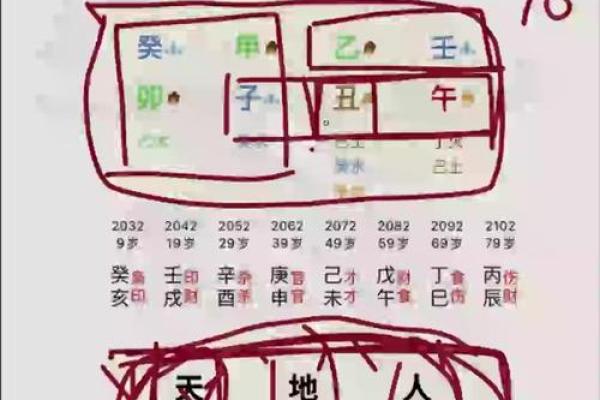 癸 甲 乙 壬
卯 子 丑 午
乙木 癸水 己土 丁火
癸水 己土
2032 2042 2052 2062 2072 2082 2092 2102
9岁 19岁 29岁 39岁 49岁 59岁 69岁 79岁
癸枭 壬印 辛杀 庚官 己才 戊财 丁食 丙伤
亥印 戌财 酉杀 申官 未才 午食 巳伤 辰财
天 地 人